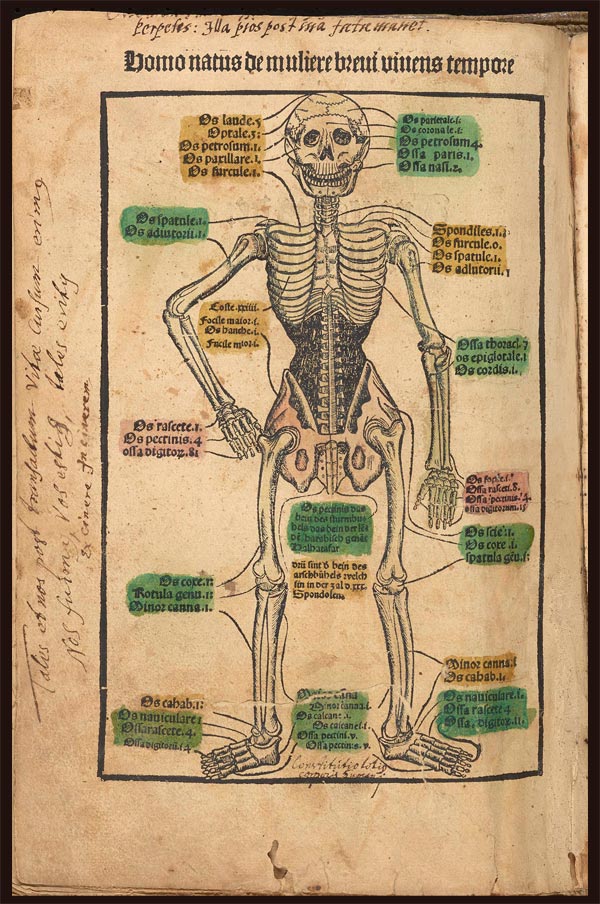 perpetes: Illa pios post ina fata manet.
Homo natus de muliere breui viuens tempore
Os laude.5
Optale.5:
Os petrosum.1.
Os paxillare.1.
Os furcule.1.
Os parietale.1:
Os coronale.1:
Os petrosum 4.
Ossa paris.1.
Ossa nasi.2.
Os spatule.1.
Os adiutorii.1
Spondiles.1.1
Os furcule.0.
Os spatule.1.
Os adiutorii.1
Coste.xxiiii.
Focile maior.i.
Os hanche.i.
Focile mior i.
Ossa thoraci.7
os epiglotale.1
Os cordis.1.
Os rascete.1.
Os pectinis.4
ossa digitorum.81
Ossa rasceti.8.
Ossa pectinis.4.
ossa digitorum.15
Os pectinis das
Os scie:1.
Os coxe.1.
spatula gen.1:
drü sint d bein des
arschbühels welch
sin in der zal d.xxx.
Spondolen.
Os coxe.1:
Rotula genu.11:
Minor canna.1:
Minor canna.1
Os cahab.1.
Os cahab.1:
Os nauiculare 1
Ossa rascete.4.
Ossa digitorum 14
Minor canna.i.
Os calcane.i.
Os calcanei.1
Ossa pectini.v.
Ossa pectinis.v.
Os nauiculare.1.
Ossa rascete 4
Ossa digitorum.11.
Constitutio
Tales et nos post transactum vitae cursum erimus
Nos fuimus vos estis, tales
ex cinere